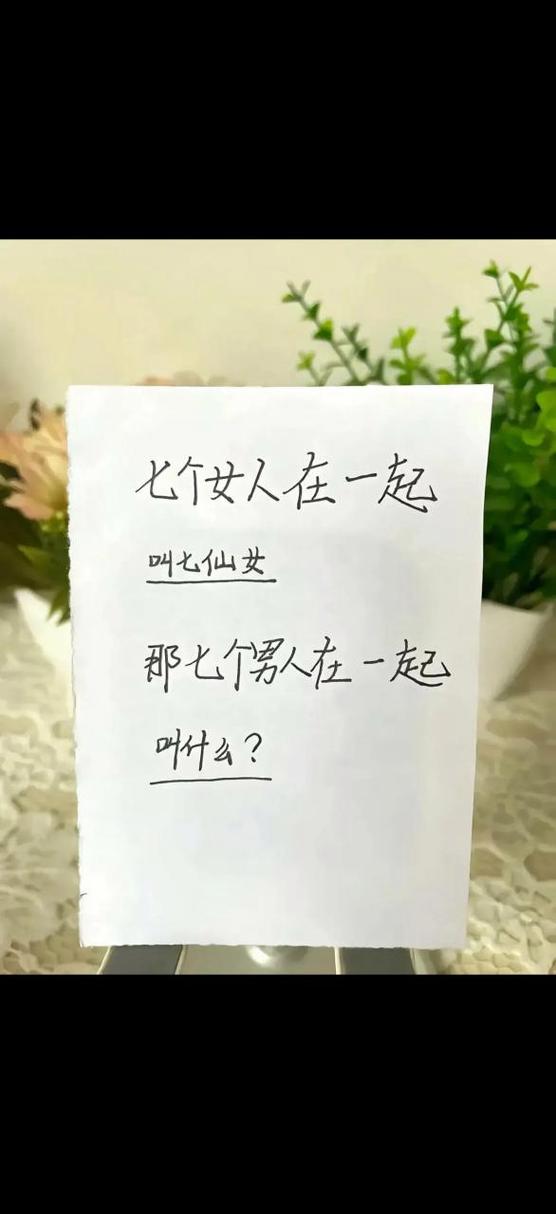 七个女人在一起
叫七仙女
那七个男人在一起
叫什么？